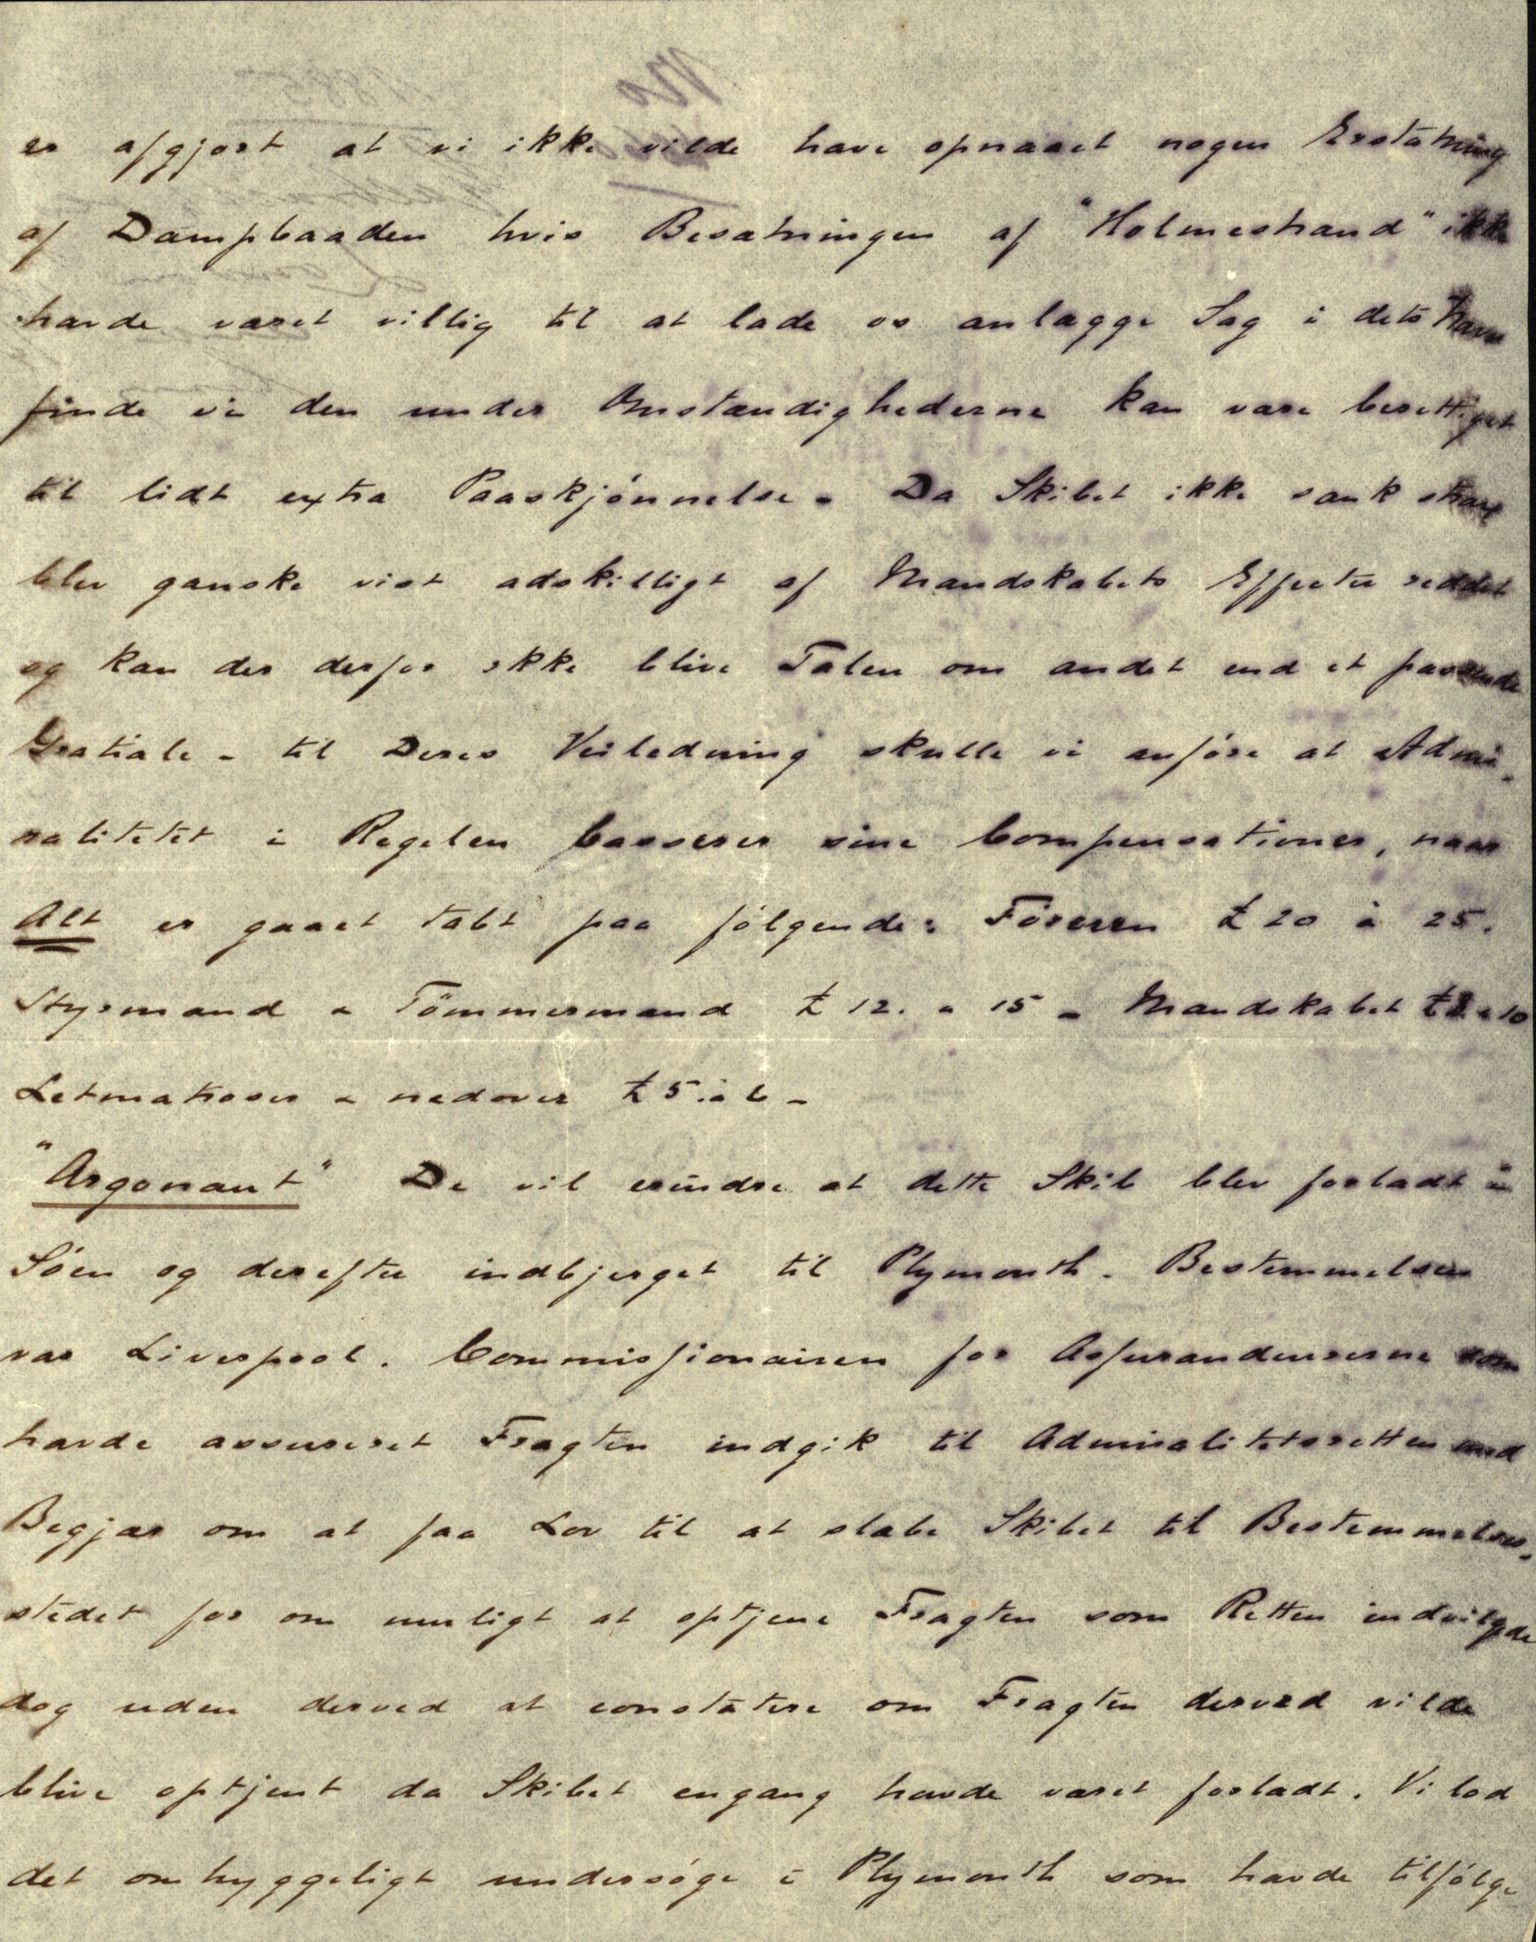 er afgjort at vi ikke vilde have opnaaet nogen Erstatning
af Dampbaaden hvis Besætningen af "Holmestrand" ikke
havde været villig til at lade os anlægge Sag i dets Navn
finde vi den under Omstændighederne kan være berettiget
til lidt extra Paaskjønnelse. Da Skibet ikke sank strax
blev ganske vist adskilligt af Mandskabets Effecter reddet
og kan der derfor ikke blive Talen om andet end et passende
Gratiale - til Deres Veiledning skulle vi anføre at Admi-
ralitetet i Regelen basserer sine Compensationer, naar
Alt er gaaet tabt paa følgende: Føreren £ 20 à 25.
Styrmand & Tömmermand £ 12. à 15 - Mandskabet £ 8 à 10
Letmatroser & nedover £ 5. à 6 -
"Argonaut" De vil erindre at dette Skib blev forladt i
Søen og derefter indbjerget til Plymouth. Bestemmelsen
var Liverpool. Commissionairen for Assurandeurerne som
havde assureret Fragten indgik til Admiralitetsretten med
Begjær om at faa Lov til at slæbe Skibet til Bestemmelses-
stedet for om muligt at optjene Fragten som Retten indvilgede
dog uden derved at constatere om Fragten derved vilde
blive optjent da Skibet engang havde været forladt. Vi lod
det omhyggeligt undersøge i Plymouth som havde tilfølge